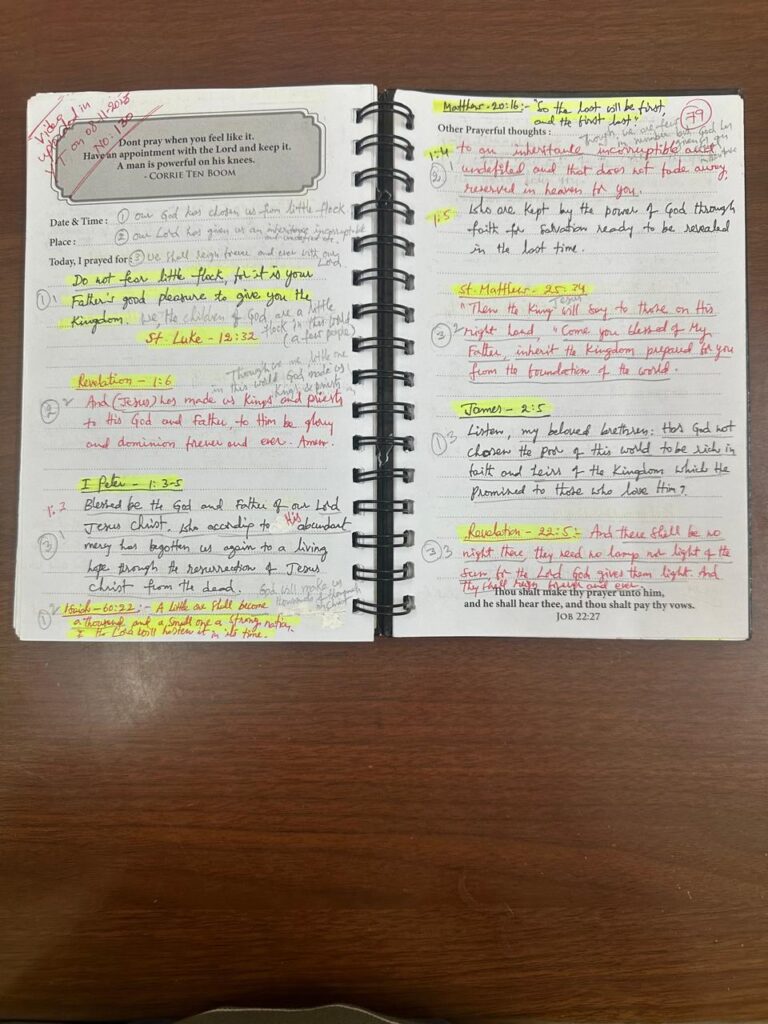 Video
uploaded in
Y.T. on 08-11-2025
NO: 130
Dont pray when you feel like it.
Have an appointment with the Lord and keep it.
A man is powerful on his knees.
- CORRIE TEN BOOM
Date & Time : ① our God has chosen us from little flock
Place : ② our Lord has given us an inheritance incorruptible
and undefiled etc.
Today, I prayed for : ③ we shall reign forever and ever with our
Lord
Do not fear little flock, for it is your
① 1 Father's good pleasure to give you the
Kingdom. we, the children of God, are a little
flock in this world
St. Luke - 12:32 (a few people)
Though we are little one
in this world God made us
Kings & priests
Revelation - 1:6
② 2 And (Jesus) has made us Kings and priests
to His God and Father, to Him be glory
and dominion forever and ever. Amen.
I Peter - 1: 3-5
1:3 Blessed be the God and Father of our Lord
Jesus Christ, who according to His abundant
③ 1 mercy has begotten us again to a living
hope through the resurrection of Jesus
Christ from the dead. God will make us
thousands of thousands
① 2 Isaiah - 60:22 :- A little one shall become
a thousand and a small one a strong nation,
I the Lord will hasten it in its time.
Matthew - 20:16 :- "So the last will be first,
and the first last"
79
Other Prayerful thoughts :
Though, we are few
in number but God has
1:4 to an inheritance incorruptible and
② 1 undefiled and that does not fade away,
reserved in heaven for you.
1:5 who are kept by the power of God through
faith for Salvation ready to be revealed
in the last time.
St. Matthew - 25:34
Jesus
"Then the King will say to those on His
③ 2 right hand, "Come, you blessed of My
Father, inherit the Kingdom prepared for you
from the foundation of the world.
James - 2:5
① 3 Listen, my beloved brethren: Has God not
chosen the poor of this world to be rich in
faith and heirs of the Kingdom which He
promised to those who love Him?
Revelation - 22:5 :- And there shall be no
③ 3 night there, they need no lamp nor light of the
Sun, for the Lord God gives them light. And
they shall reign forever and ever.
Thou shalt make thy prayer unto him,
and he shall hear thee, and thou shalt pay thy vows.
JOB 22:27